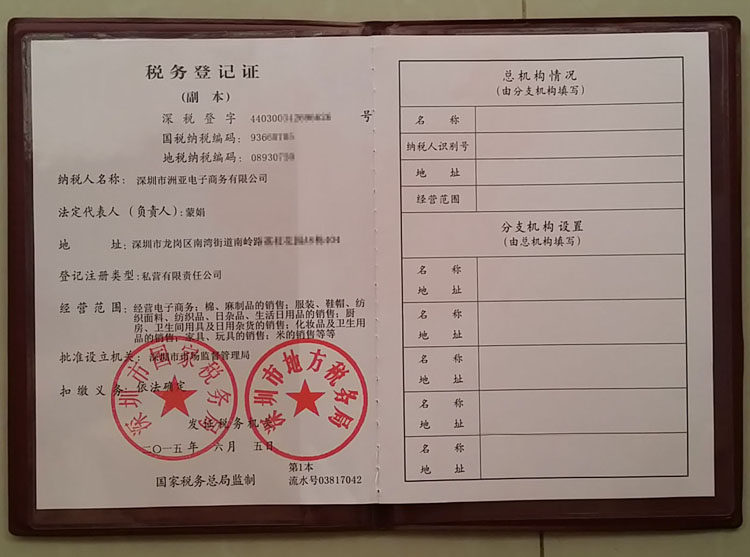 税务登记证
(副 本)
深 税 登 字 440300 号
国税纳税编码: 936
地税纳税编码: 08930
纳税人名称: 深圳市洲亚电子商务有限公司
法定代表人(负责人): 蒙娟
地 址: 深圳市龙岗区南湾街道南岭路
登记注册类型: 私营有限责任公司
经 营 范 围: 经营电子商务; 棉、麻制品的销售; 服装、鞋帽、纺
织面料、纺织品、日杂品、生活日用品的销售; 厨
房、卫生间用具及日用杂货的销售; 化妆品及卫生用
品的销售; 家具、玩具的销售; 米的销售等等
批准设立机关: 深圳市市场监督管理局
扣 缴 义 务: 依法确定
深圳市国家税务局
深圳市地方税务局
发证税务机关
二〇一五年 六月 五日
第1本
国家税务总局监制 流水号03817042
总机构情况
(由分支机构填写)
名 称
纳税人识别号
地 址
经营范围
分支机构设置
(由总机构填写)
名 称
地 址
名 称
地 址
名 称
地 址
名 称
地 址
名 称
地 址